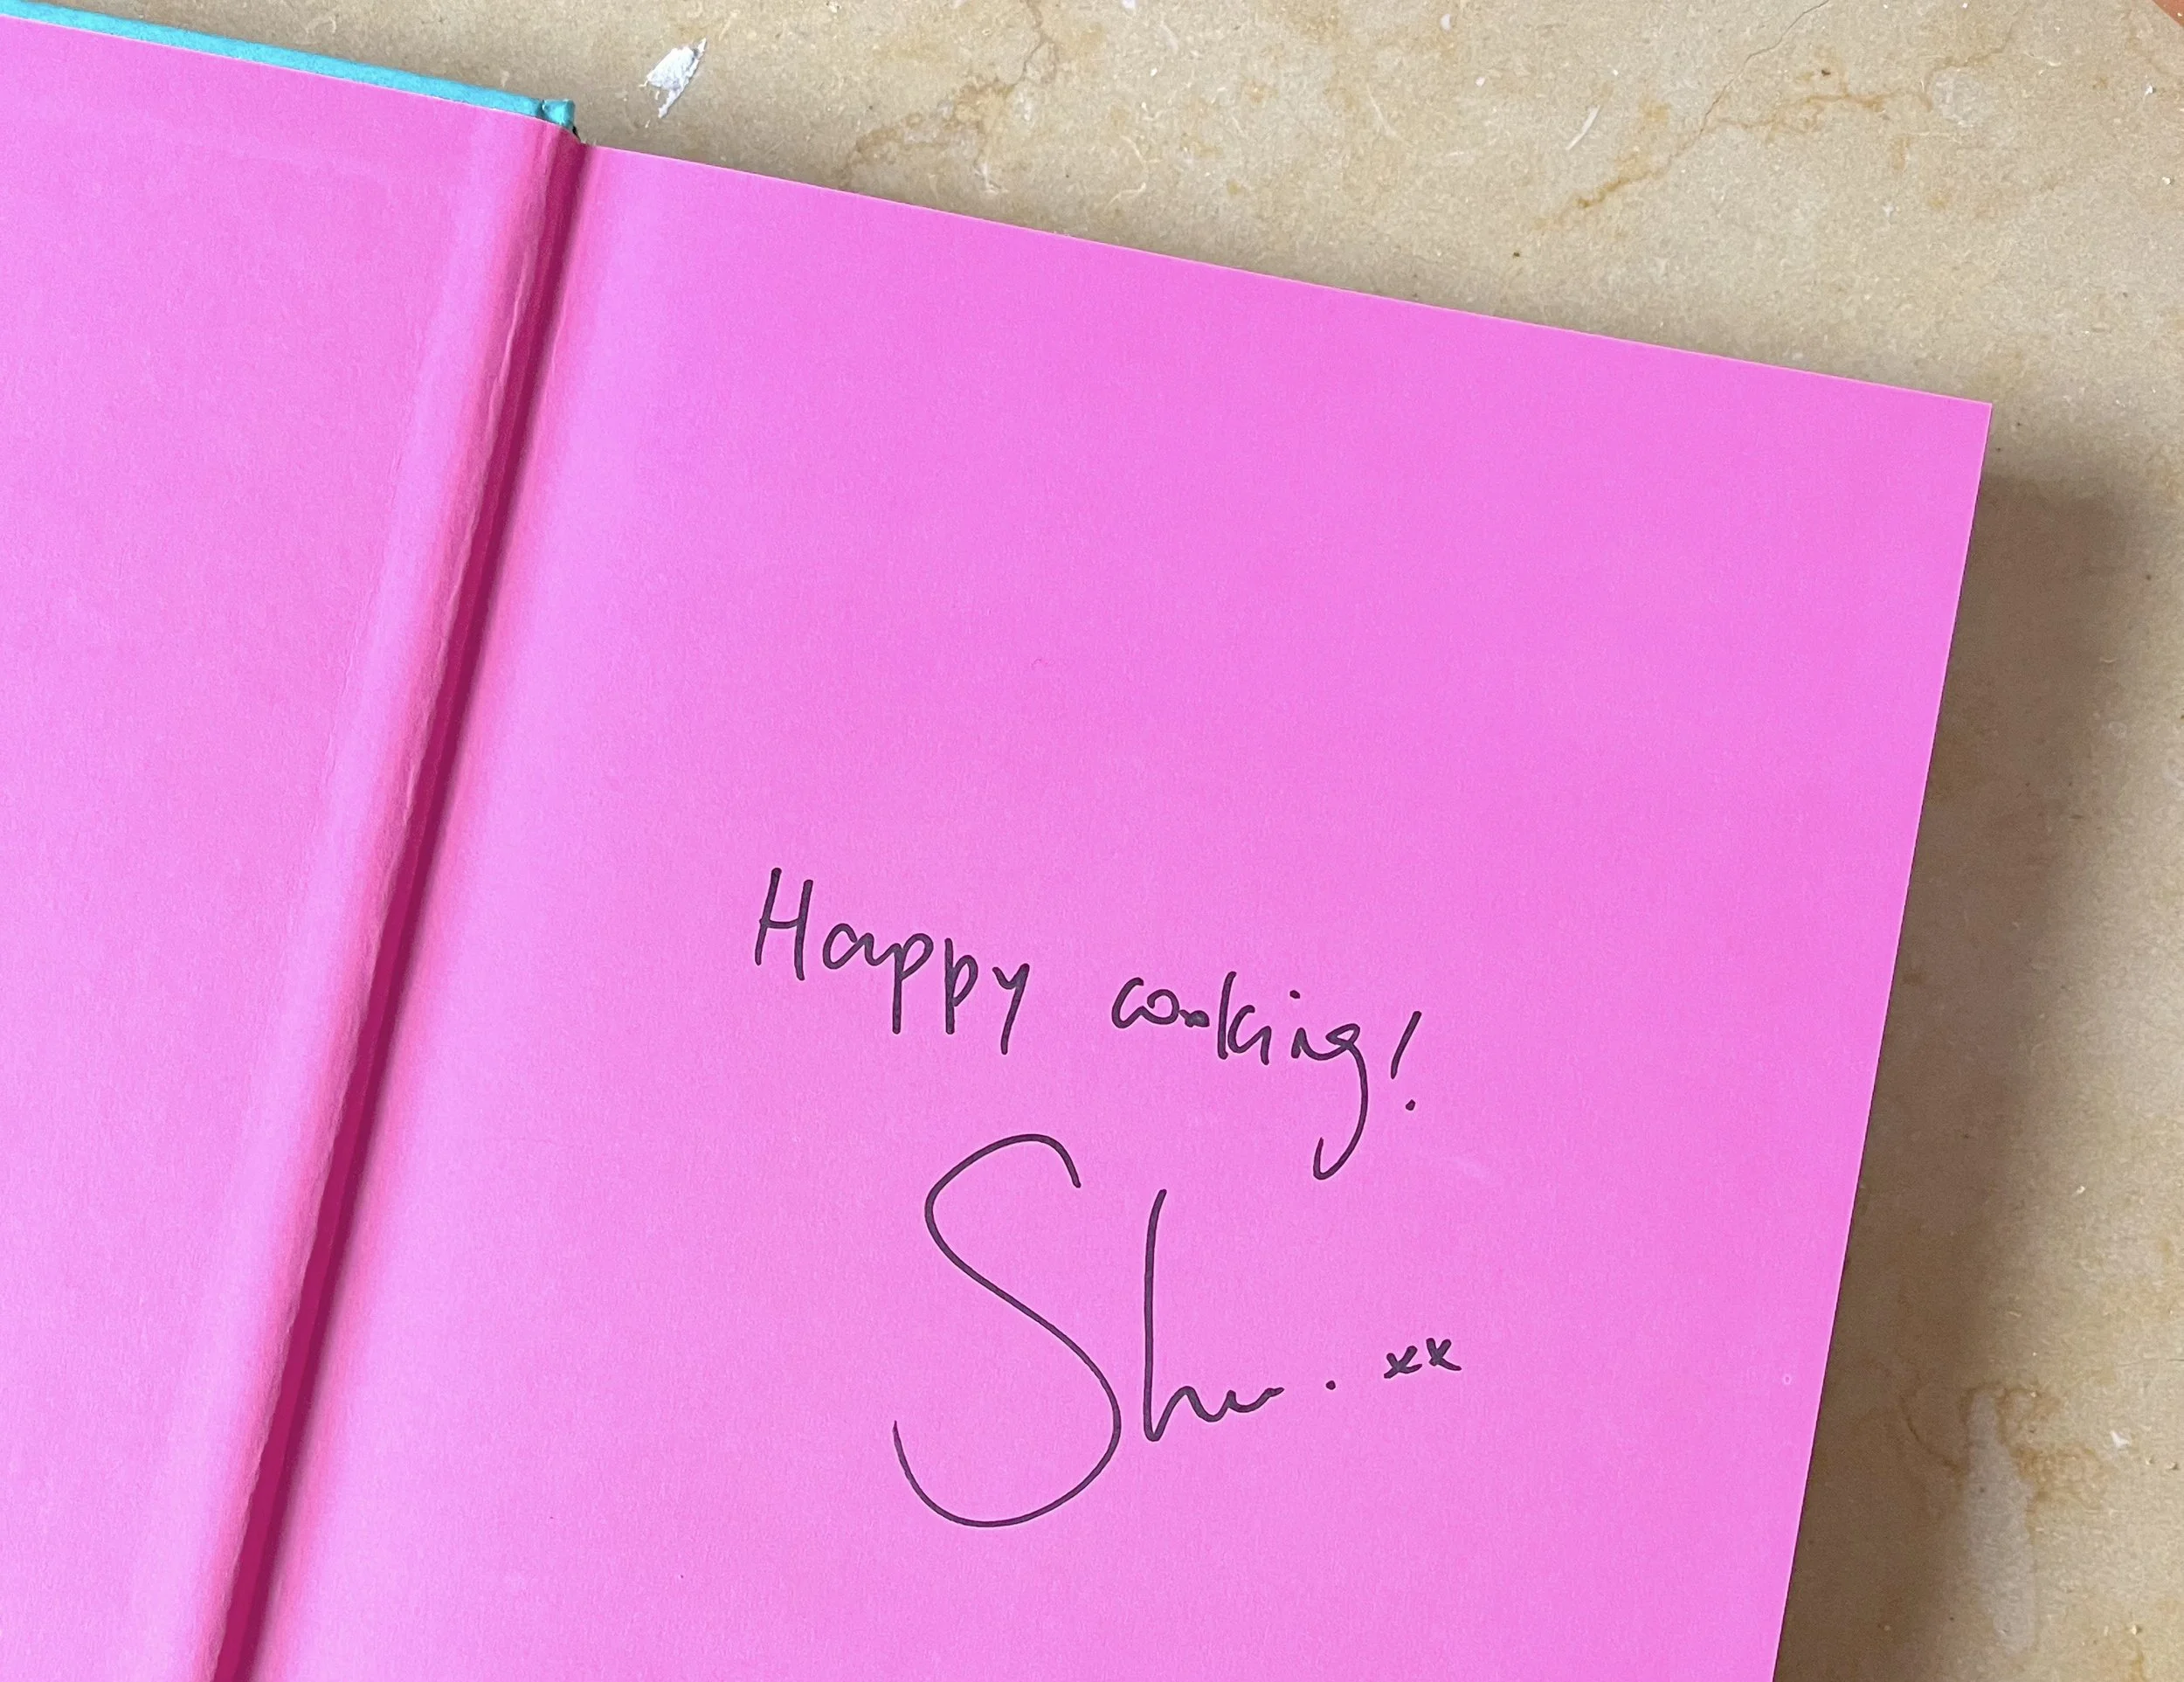 Happy cooking!
Shu. xx